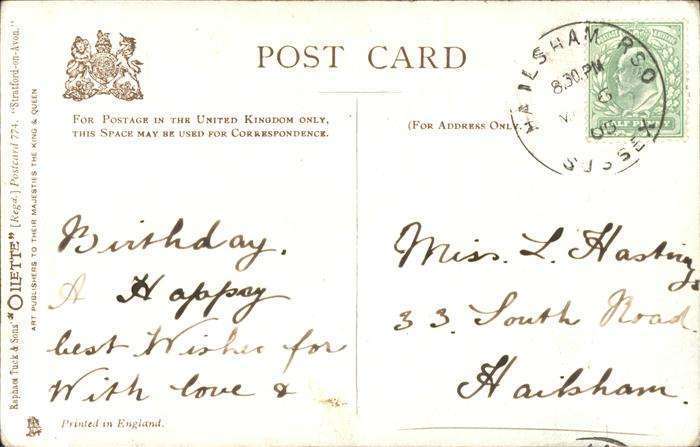 POST CARD
FOR POSTAGE IN THE UNITED KINGDOM ONLY,
THIS SPACE MAY BE USED FOR CORRESPONDENCE.
(FOR ADDRESS ONLY.
HAILSHAM R.S.O
8.30.PM
6
SUSSEX
HALF PENNY
Birthday.
A Happy
best Wishes for
With love &
Miss. L. Hastings
33. South Road.
Hailsham.
Printed in England.
Raphael Tuck & Sons' "OILETTE" [Regd.] Postcard 774, "Stratford-on-Avon."
ART PUBLISHERS TO THEIR MAJESTIES THE KING & QUEEN